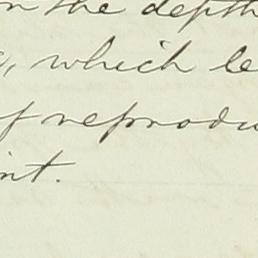 the depth
, which le
of reprodu
nt.